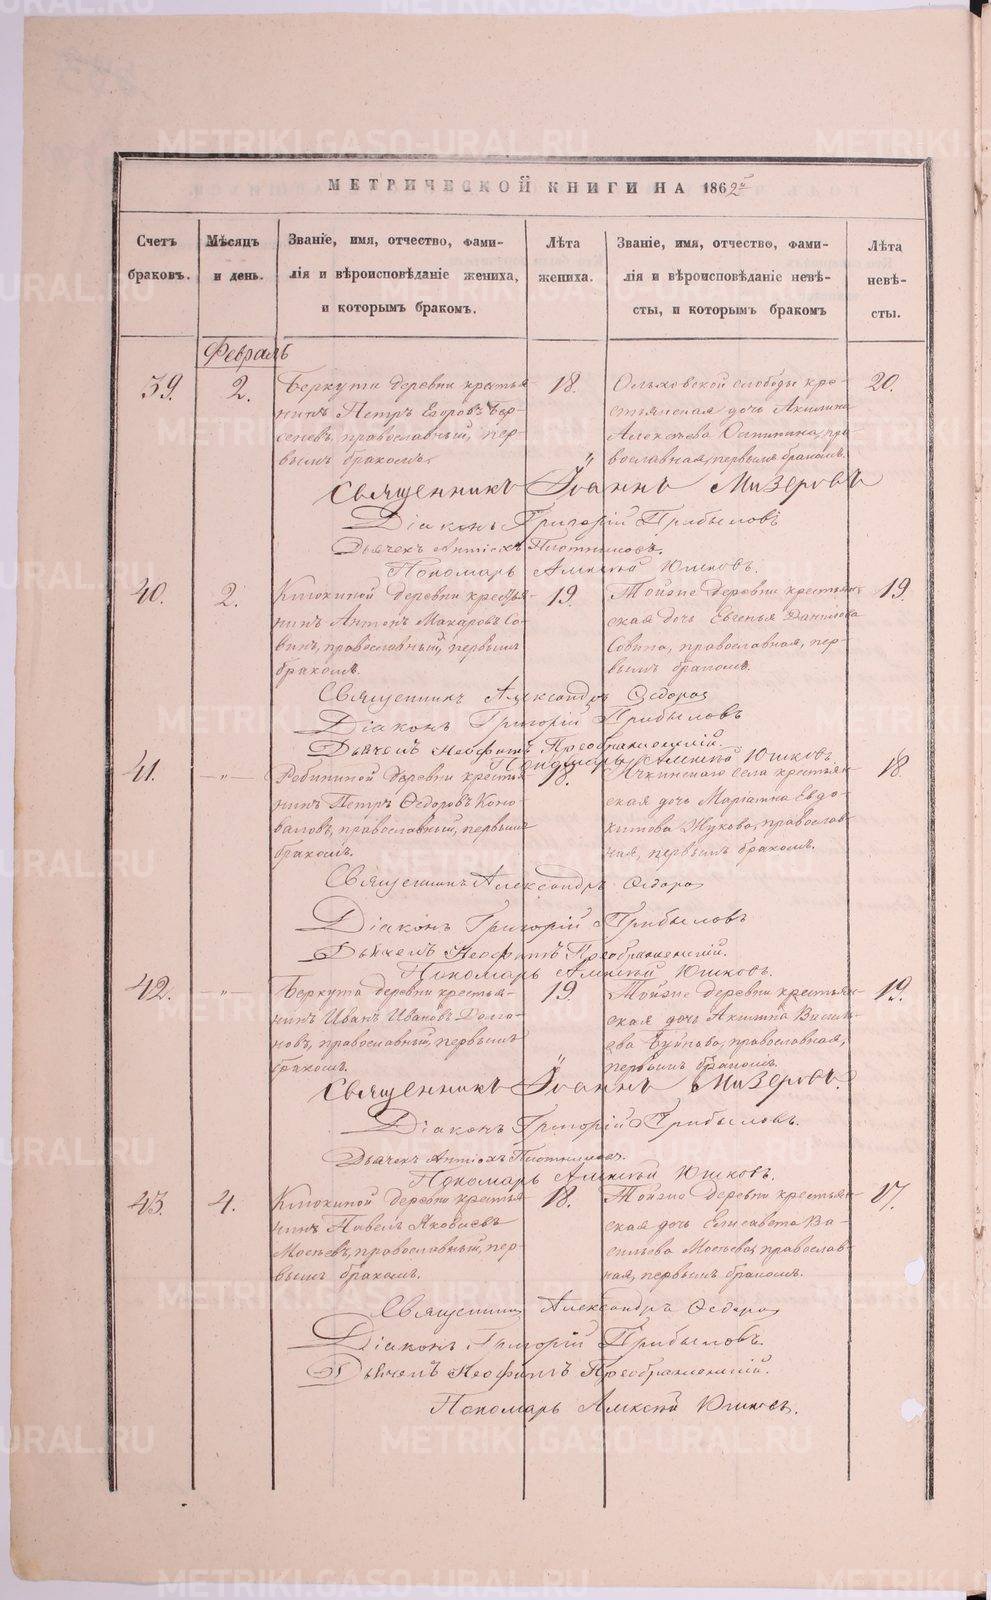 МЕТРИЧЕСКОЙ КНИГИ НА 1862й
Счетъ браковъ.
Мѣсяцъ и день.
Званіе, имя, отчество, фами-
лія и вѣроисповѣданіе жениха,
и которымъ бракомъ.
Лѣта жениха.
Званіе, имя, отчество, фами-
лія и вѣроисповѣданіе невѣ-
сты, и которымъ бракомъ
Лѣта невѣ-
сты.
Февраль
39.
2.
Беркута деревни крестья-
нинъ Петръ Егоровъ Бер-
сеневъ, православный, пер-
вымъ бракомъ.
18.
Ольховской слободы кре-
стьянская дочь Акилина
Алексѣева, пра-
вославная, первымъ бракомъ.
20.
Священникъ Іоаннъ Мизеровъ
Діаконъ Григорій Прибыловъ
Дьячекъ Антіохъ Плотниковъ.
Пономарь Алексѣй Юшковъ.
40.
2.
Клюкиной деревни крестья-
нинъ Антонъ Макаровъ Со-
винъ, православный, первымъ
бракомъ.
19.
деревни крестьян-
ская дочь Евгенья Данілова
Совина, православная, пер-
вымъ бракомъ.
19.
Священникъ Александръ Ѳедоров
Діаконъ Григорій Прибыловъ
Дьячекъ Неофитъ Преображенскій.
Пономарь Алексѣй Юшковъ.
41.
— " —
деревни крестья-
нинъ Петръ Ѳедоровъ Коно-
валовъ, православный, первымъ
бракомъ.
18.
села крестьян-
ская дочь Маріамна Евдо-
кимова Жукова, православ-
ная, первымъ бракомъ.
18.
Священникъ Александръ Ѳедоров
Діаконъ Григорій Прибыловъ
Дьячекъ Неофитъ Преображенскій.
Пономарь Алексѣй Юшковъ.
42.
— " —
Беркута деревни крестья-
нинъ Иванъ Ивановъ Долга-
новъ, православный, первымъ
бракомъ.
19.
деревни крестьян-
ская дочь Акилина Василь-
ева, православная,
первымъ бракомъ.
19.
Священникъ Іоаннъ Мизеровъ.
Діаконъ Григорій Прибыловъ.
Дьячекъ Антіохъ Плотниковъ.
Пономарь Алексѣй Юшковъ.
43.
4.
Клюкиной деревни крестья-
нинъ Павелъ Яковлевъ
православный, пер-
вымъ бракомъ.
18.
деревни крестьян-
ская дочь Елисавета Ва-
сильева православ-
ная, первымъ бракомъ.
17.
Священникъ Александръ Ѳедоров
Діаконъ Григорій Прибыловъ.
Дьячекъ Неофитъ Преображенскій.
Пономарь Алексѣй Юшковъ.
METRIKI.GASO-URAL.RU